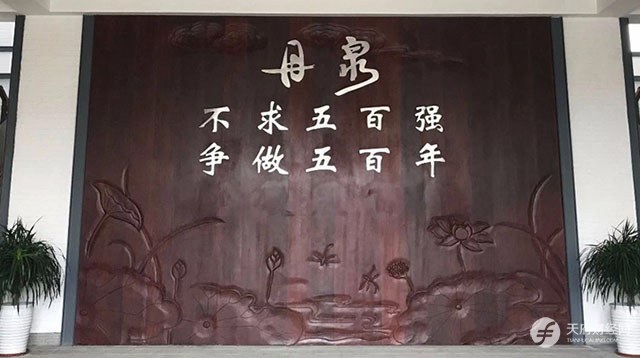 丹泉
不求五百强
争做五百年
天府财经